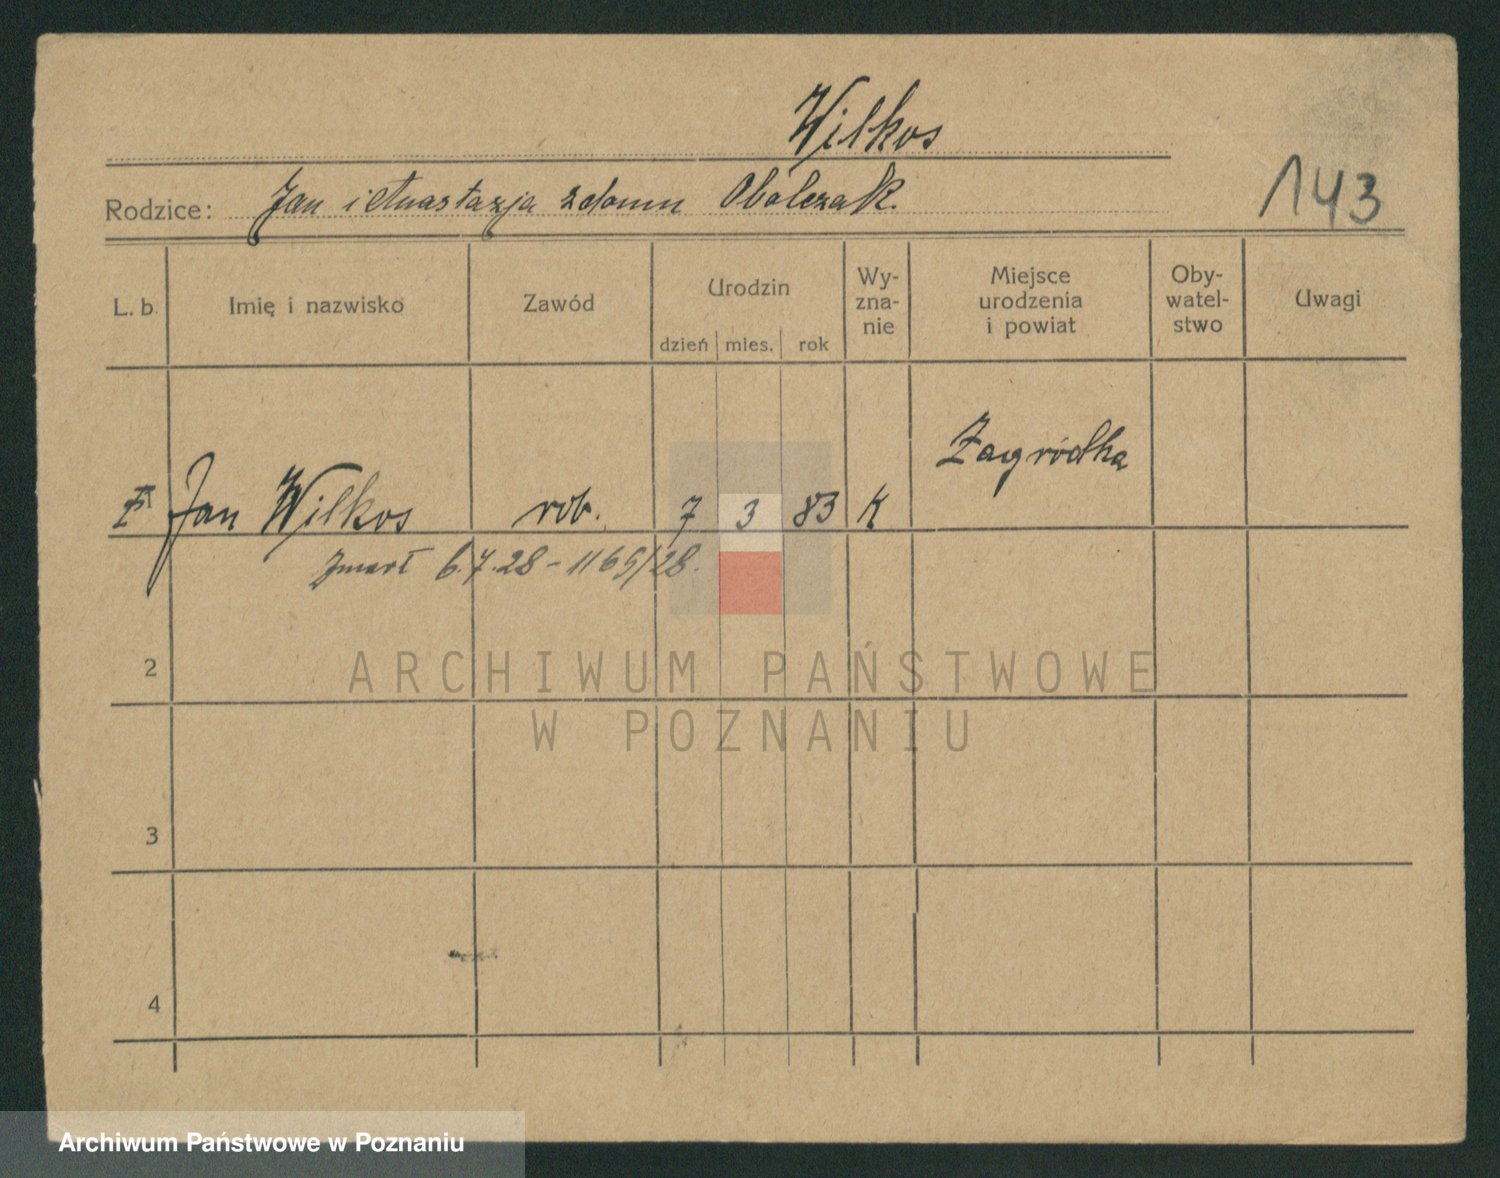 Wilkos
143
Rodzice: Jan i Anastazja z domu Obolczak.
L. b. Imię i nazwisko Zawód Urodzin Wy-zna-nie Miejsce urodzenia i powiat Oby-watel-stwo Uwagi
dzień mies. rok
Zagródka
Jan Wilkos rob. 7 3 83 K
zmarł 6.7.28 - 1165/28.
2
3
4
ARCHIWUM PAŃSTWOWE
W POZNANIU
Archiwum Państwowe w Poznaniu